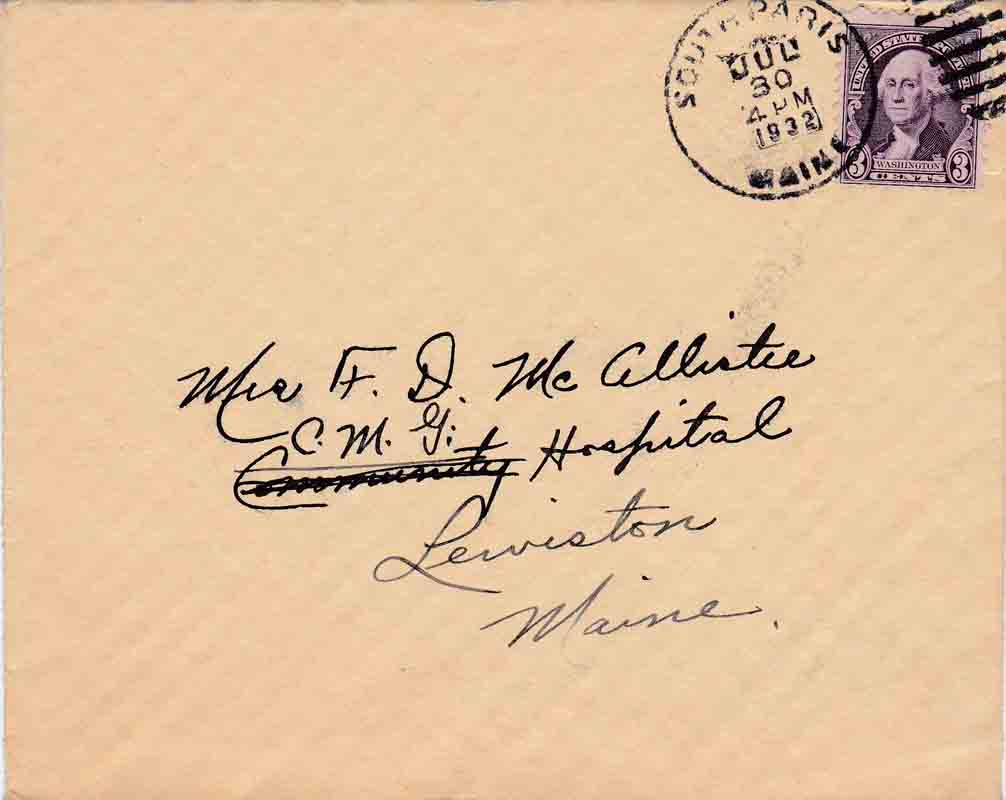 SOUTH PARIS
JUL
30
4 PM
1932
MAINE
UNITED STATES POSTAGE
3 WASHINGTON 3
CENTS
Mrs F. D. Mc Allister
C. M. G.
Community Hospital
Lewiston
Maine.